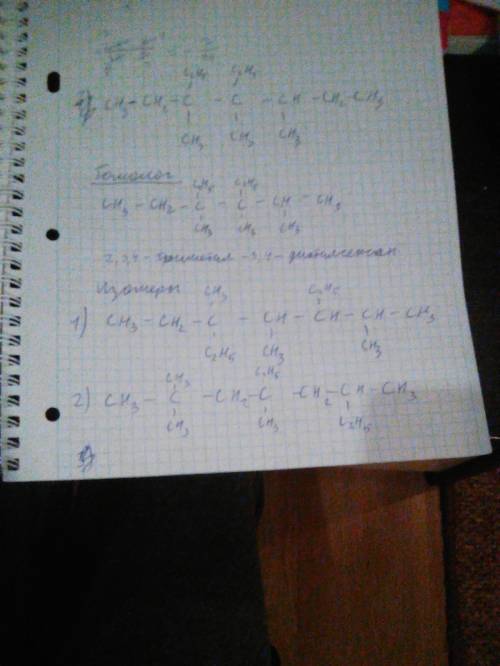 C₂H₅ C₂H₅
CH₃ - CH₂ - C - C - CH - CH₂ - CH₃
CH₃ CH₃ CH₃
Гомолог
C₂H₅ C₂H₅
CH₃ - CH₂ - C - C - CH - CH₃
CH₃ CH₃ CH₃
2,3,4 - триметил - 3,4 - диэтилгексан
Изомеры
CH₃ C₂H₅
1) CH₃ - CH₂ - C - CH - CH - CH - CH₃
C₂H₅ CH₃ CH₃
CH₃ C₂H₅
2) CH₃ - C - CH₂ - C - CH₂ - CH - CH₃
CH₃ CH₃ C₂H₅